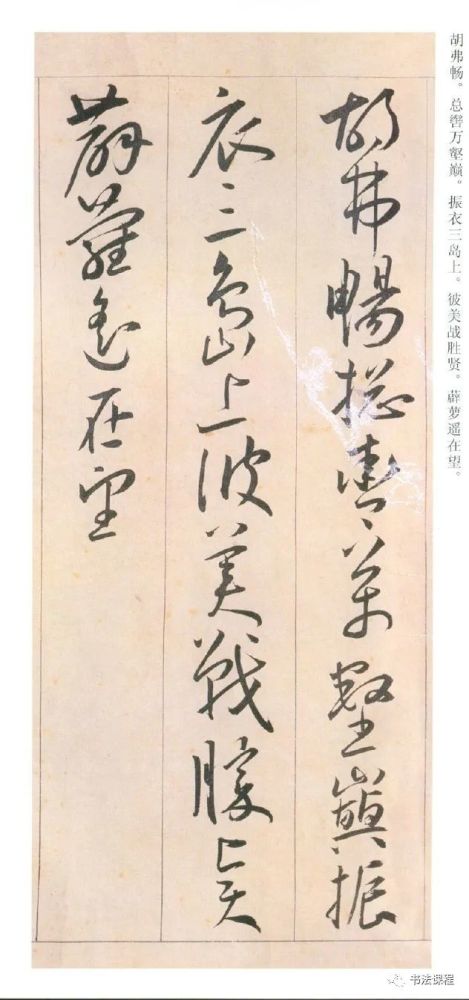 胡弗畅。总辔万壑巅。振衣三岛上。彼美战胜贤。薜萝遥在望。
胡弗暢揔轡万壑巔振
衣三島上彼美戰勝賢
薜蘿遥在望
书法课程